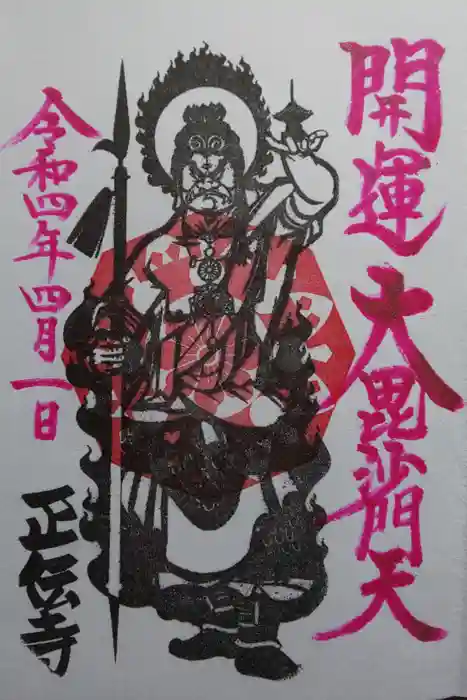 開運大毘沙門天
令和四年四月一日
正伝寺